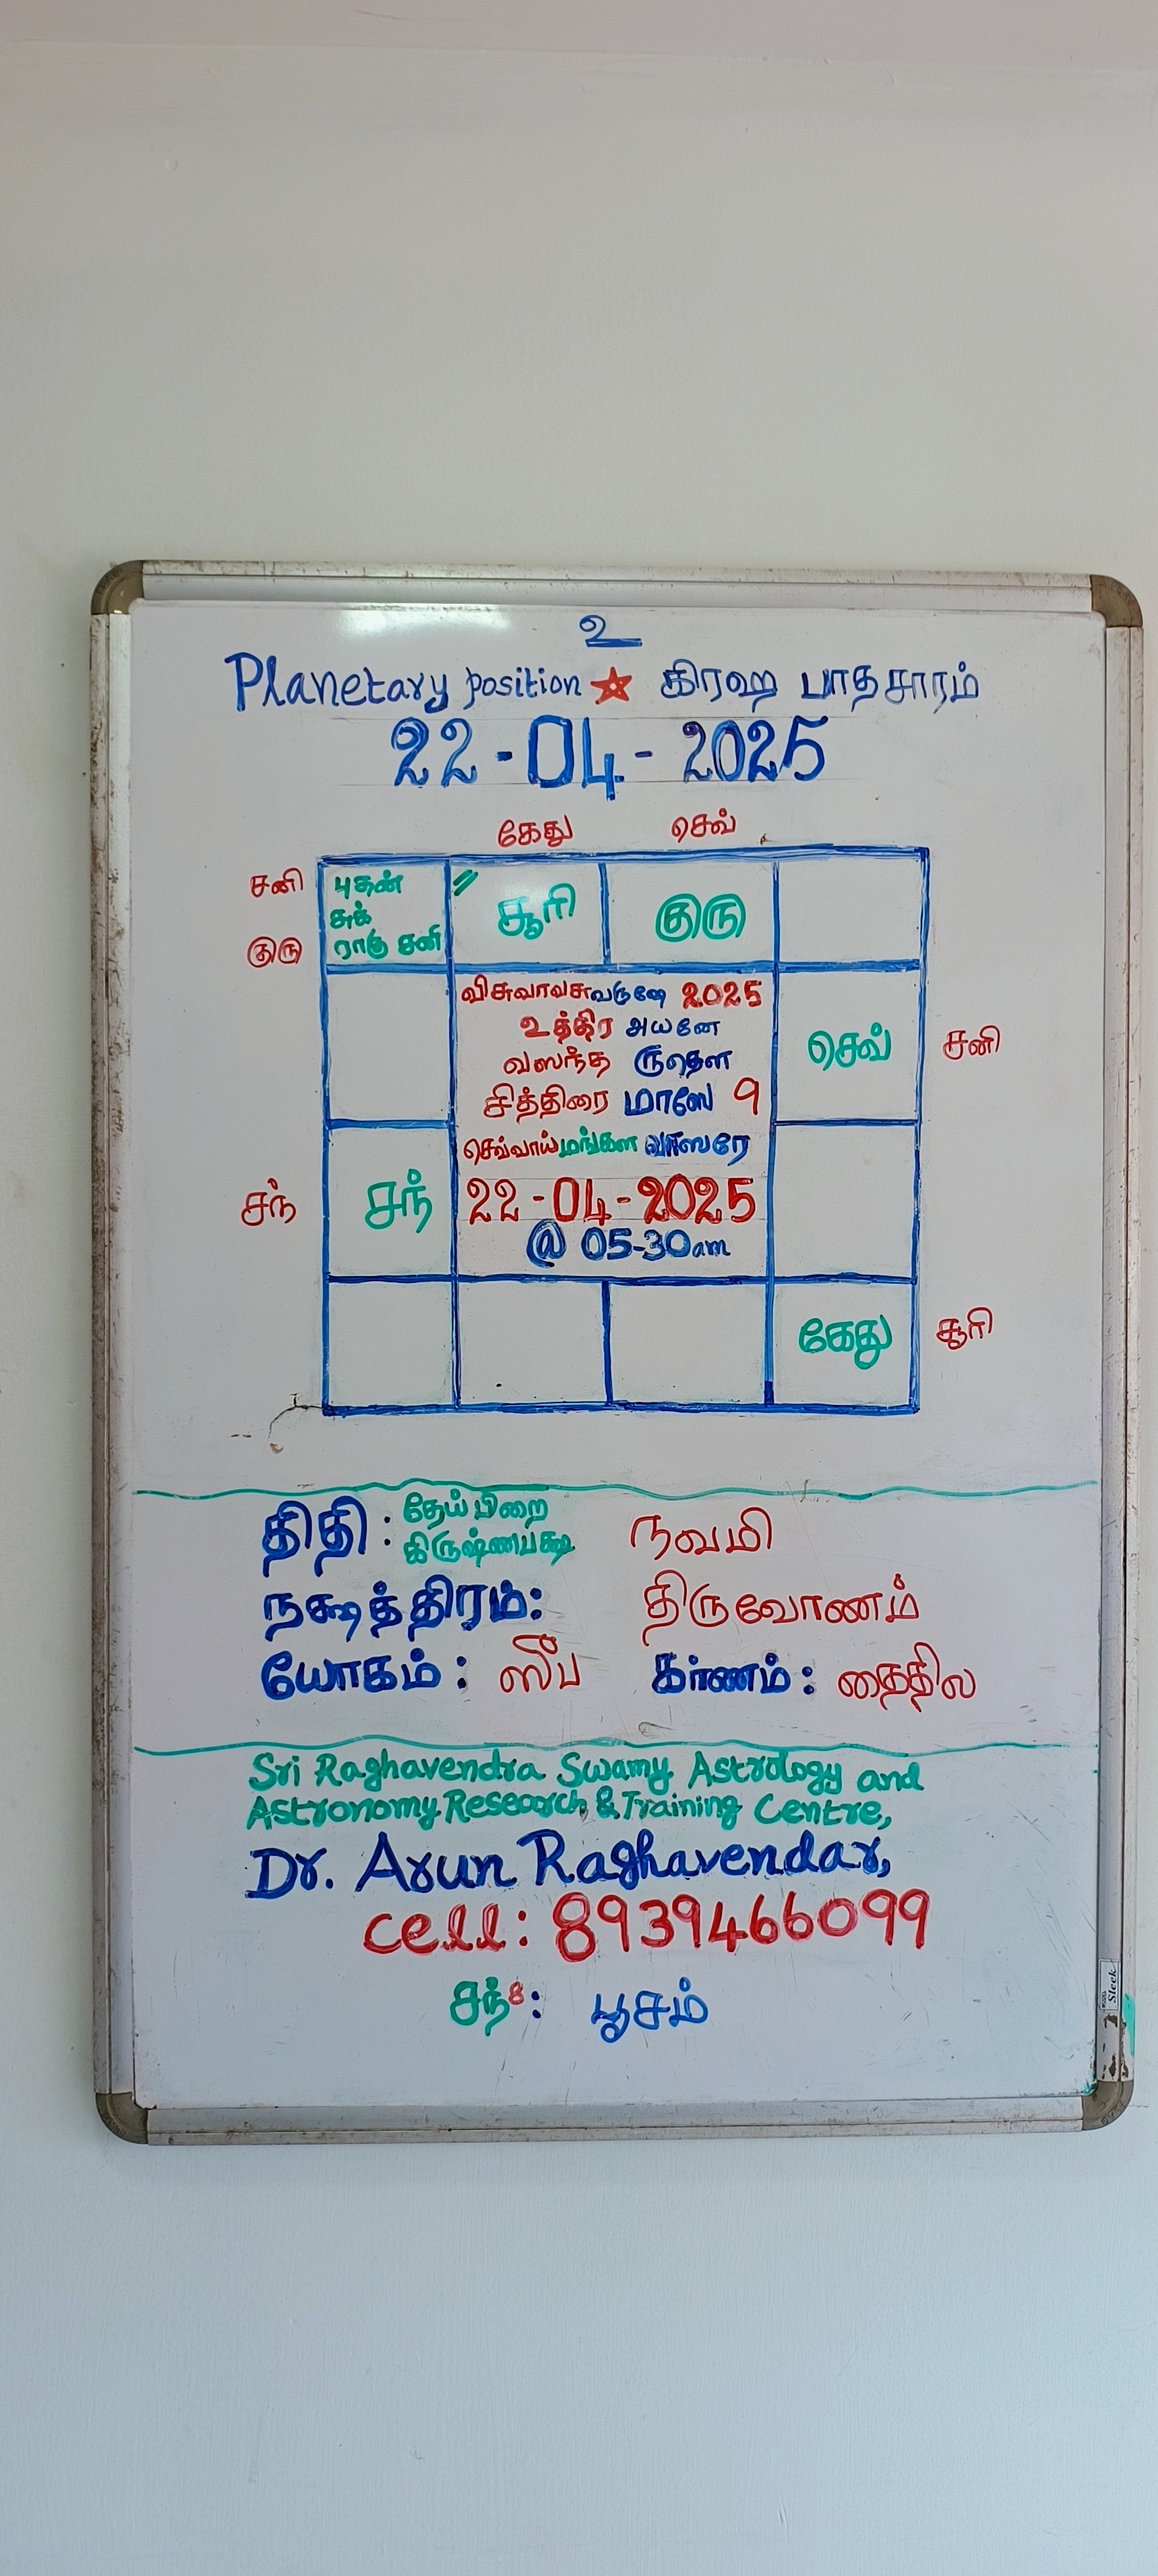 உ
Planetary position ★ கிரஹ பாதசாரம்
22-04-2025
கேது செவ்
சனி புதன் சூரி குரு
சுக்
குரு ராகு சனி
விசுவாவசுவருஷே 2025
உத்திர அயனே
வஸந்த ருதௌ
செவ் சனி
சித்திரை மாஸே 9
செவ்வாய் மங்கள வாஸரே
சந் சந் 22-04-2025
@ 05-30am
கேது சூரி
திதி : தேய்பிறை நவமி
கிருஷ்ணபக்ஷ
நக்ஷத்திரம்: திருவோணம்
யோகம் : ஸுப கர்ணம் : தைதில
Sri Raghavendra Swamy Astrology and
Astronomy Research & Training Centre,
Dr. Arun Raghavendar,
cell: 8939466099
சந்8: பூசம்
Sleek